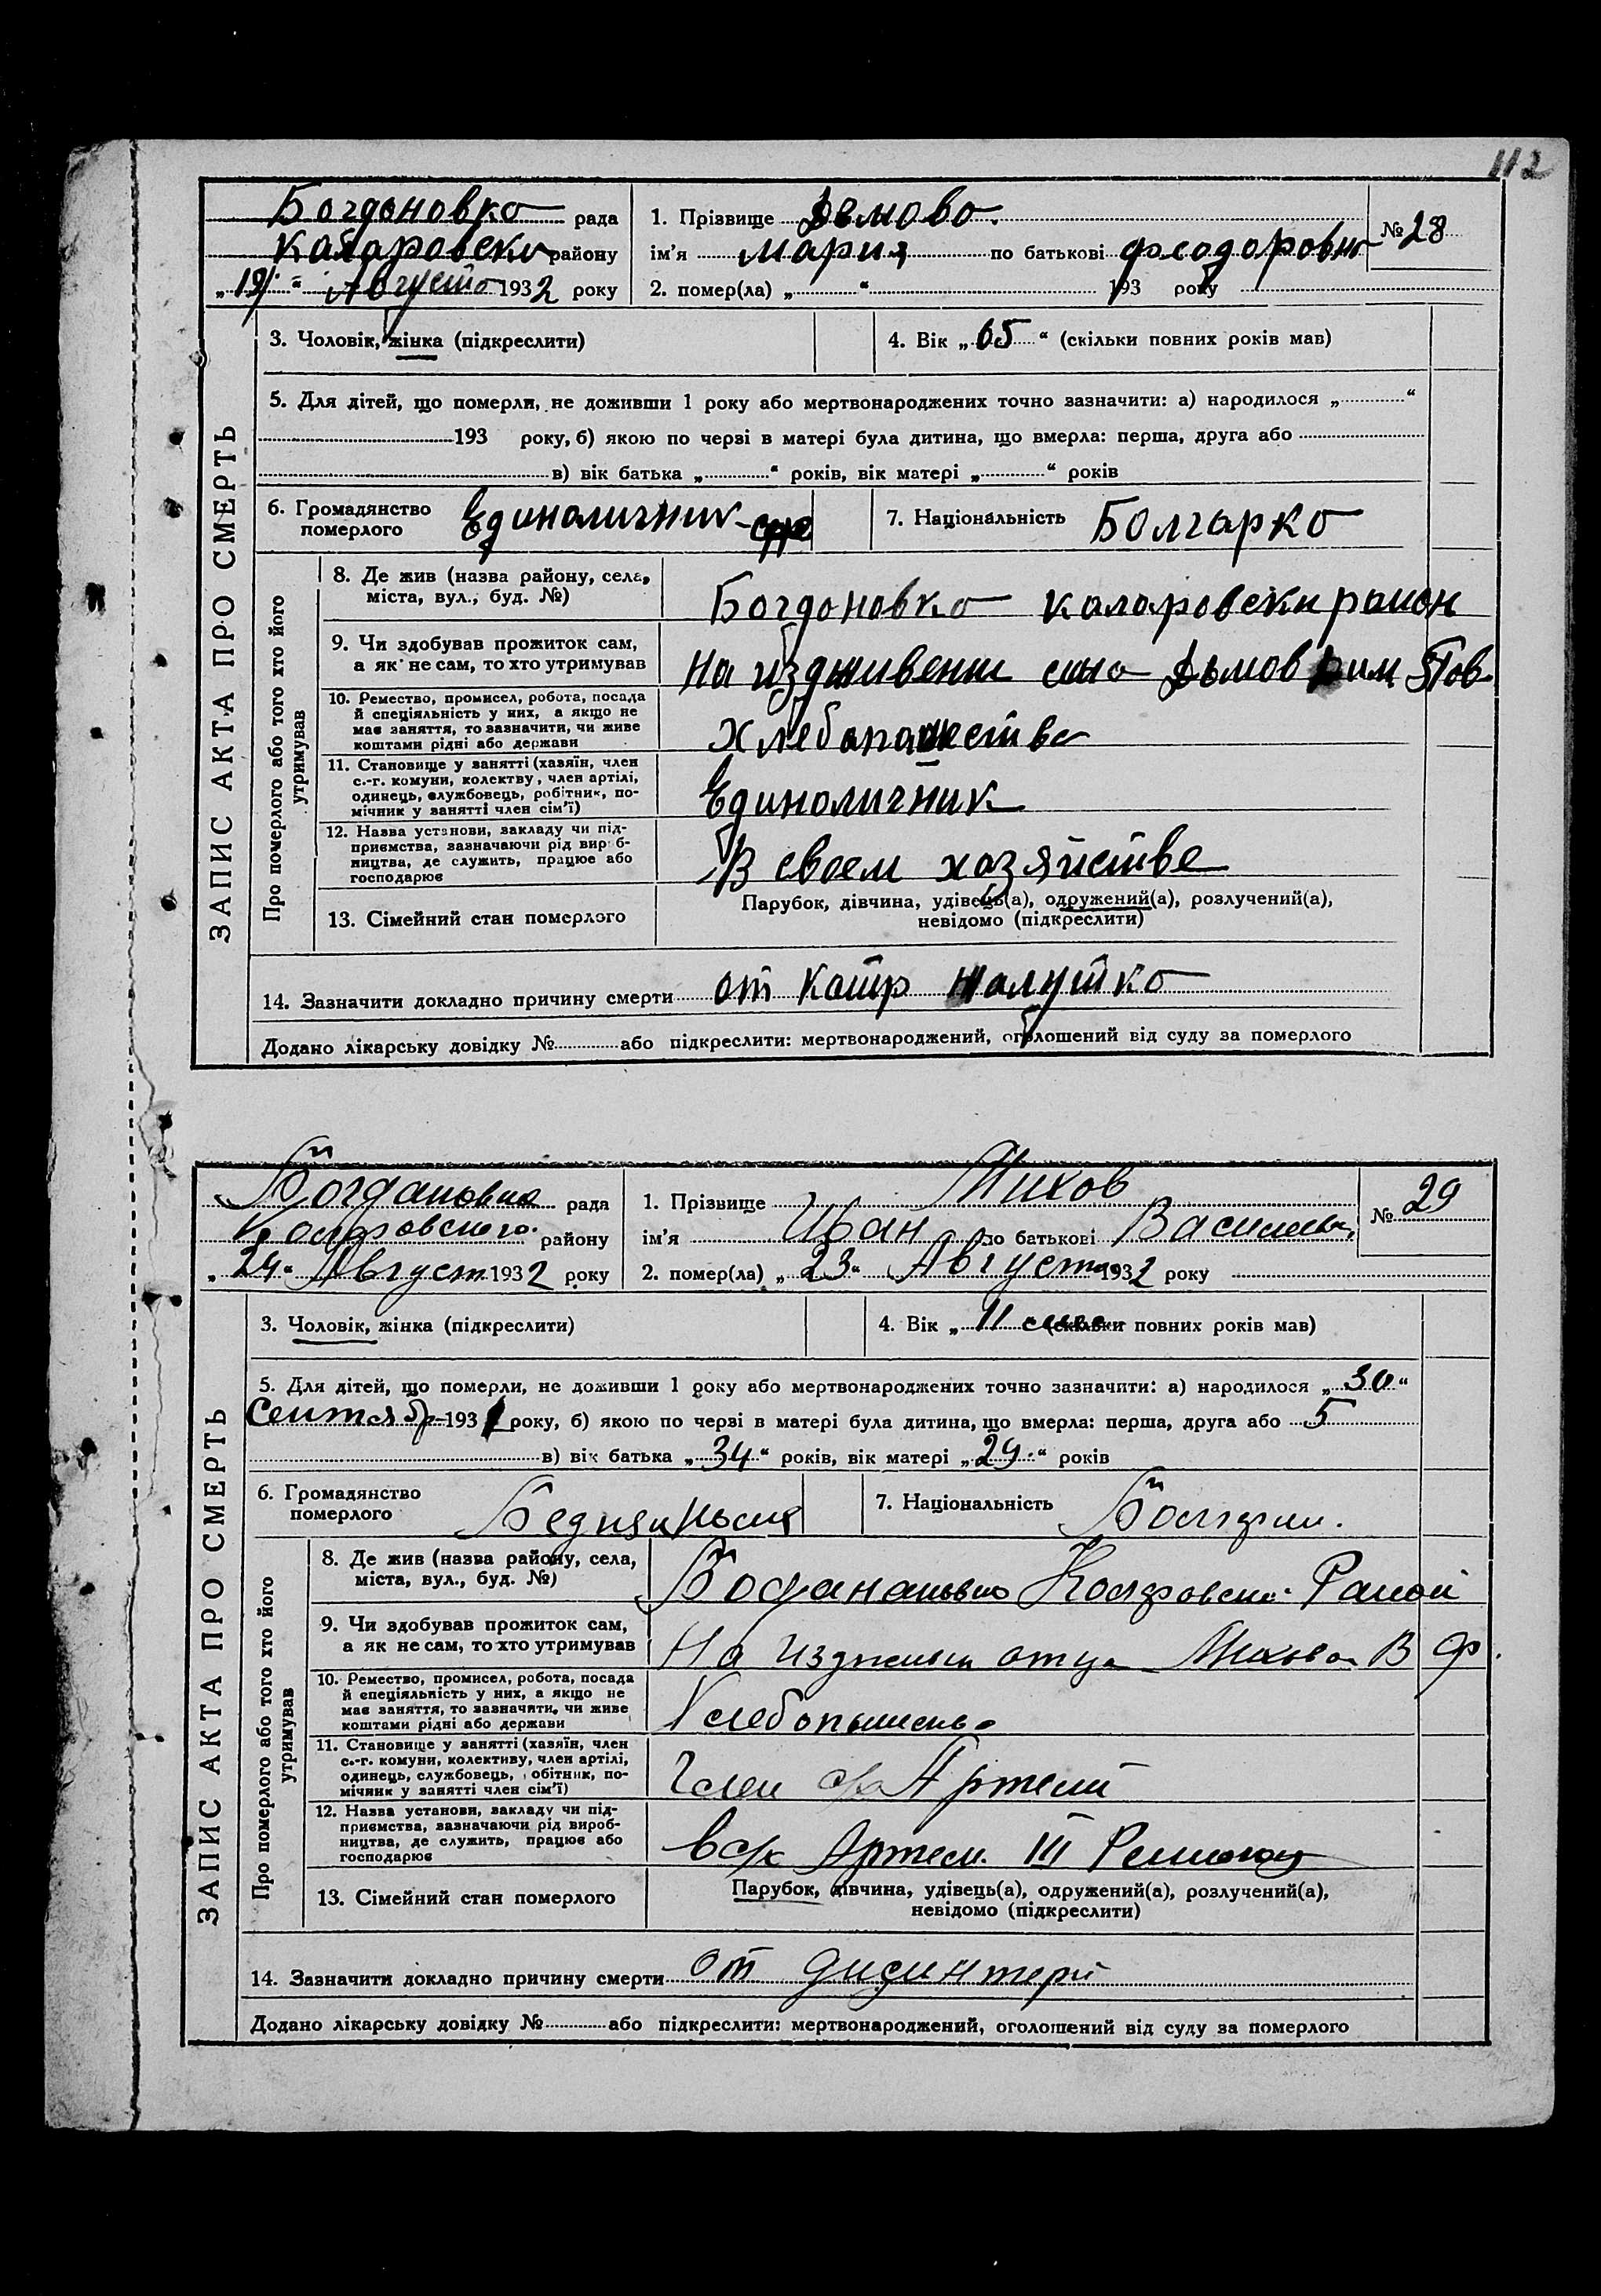 112
Богдоновко рада
района
"19" Августо 1932 року
1. Прізвище Дымово.
ім'я Мария по батькові Феодоровно
2. помер(ла) „ “ 193 року
№ 28
ЗАПИС АКТА ПРО СМЕРТЬ
3. Чоловік, жінка (підкреслити)
4. Вік „65“ (скільки повних років мав)
5. Для дітей, що померли, не доживши 1 року або мертвонароджених точно зазначити: а) народилося „ “
193 року, б) якою по черзі в матері була дитина, що вмерла: перша, друга або
в) вік батька „ “ років, вік матері „ “ років
6. Громадянство
померлого
Единоличник-
7. Національність Болгарко
Про померлого або того хто його
утримував
8. Де жив (назва району, села,
міста, вул., буд. №)
Богдоновко каларовски район
9. Чи здобував прожиток сам,
а як не сам, то хто утримував
На издживении сына Дымов
10. Ремество, промисел, робота, посада
й спеціяльність у них, а якщо не
має заняття, то зазначити, чи живе
коштами рідні або держави
Хлебопашество
11. Становище у занятті (хазяїн, член
с.-г. комуни, колектву, член артілі,
одинець, службовець, робітник, по-
мічник у занятті член сім'ї)
Единоличник
12. Назва установи, закладу чи під-
приємства, зазначаючи рід вироб-
ництва, де служить, працює або
господарює
В своем хозяйстве
13. Сімейний стан померлого
Парубок, дівчина, удівець(а), одружений(а), розлучений(а),
невідомо (підкреслити)
14. Зазначити докладно причину смерти от Катар жалутко
Додано лікарську довідку № або підкреслити: мертвонароджений, оголошений від суду за померлого
Богдановка рада
Коларовского району
„24“ Август 1932 року
1. Прізвище Михов
ім'я Иван по батькові Васильев.
2. помер(ла) „23“ Августа 1932 року
№ 29
ЗАПИС АКТА ПРО СМЕРТЬ
3. Чоловік, жінка (підкреслити)
4. Вік „11 (скільки повних років мав)
5. Для дітей, що померли, не доживши 1 року або мертвонароджених точно зазначити: а) народилося „30“
Сентябр 1931 року, б) якою по черзі в матері була дитина, що вмерла: перша, друга або 5
в) вік батька „34“ років, вік матері „29“ років
6. Громадянство
померлого
7. Національність Болгарин.
Про померлого або того хто його
утримував
8. Де жив (назва району, села,
міста, вул., буд. №)
9. Чи здобував прожиток сам,
а як не сам, то хто утримував
На отца Михова В Ф.
10. Ремество, промисел, робота, посада
й спеціяльність у них, а якщо не
має заняття, то зазначити, чи живе
коштами рідні або держави
11. Становище у занятті (хазяїн, член
с.-г. комуни, колективу, член артілі,
одинець, службовець, обітник, по-
мічник у занятті член сім'ї)
Член с/х Артели
12. Назва установи, закладу чи під-
приємства, зазначаючи рід вироб-
ництва, де служить, працює або
господарює
в с/х Артели III
13. Сімейний стан померлого
Парубок, дівчина, удівець(а), одружений(а), розлучений(а),
невідомо (підкреслити)
14. Зазначити докладно причину смерти от дизинтери
Додано лікарську довідку № або підкреслити: мертвонароджений, оголошений від суду за померлого